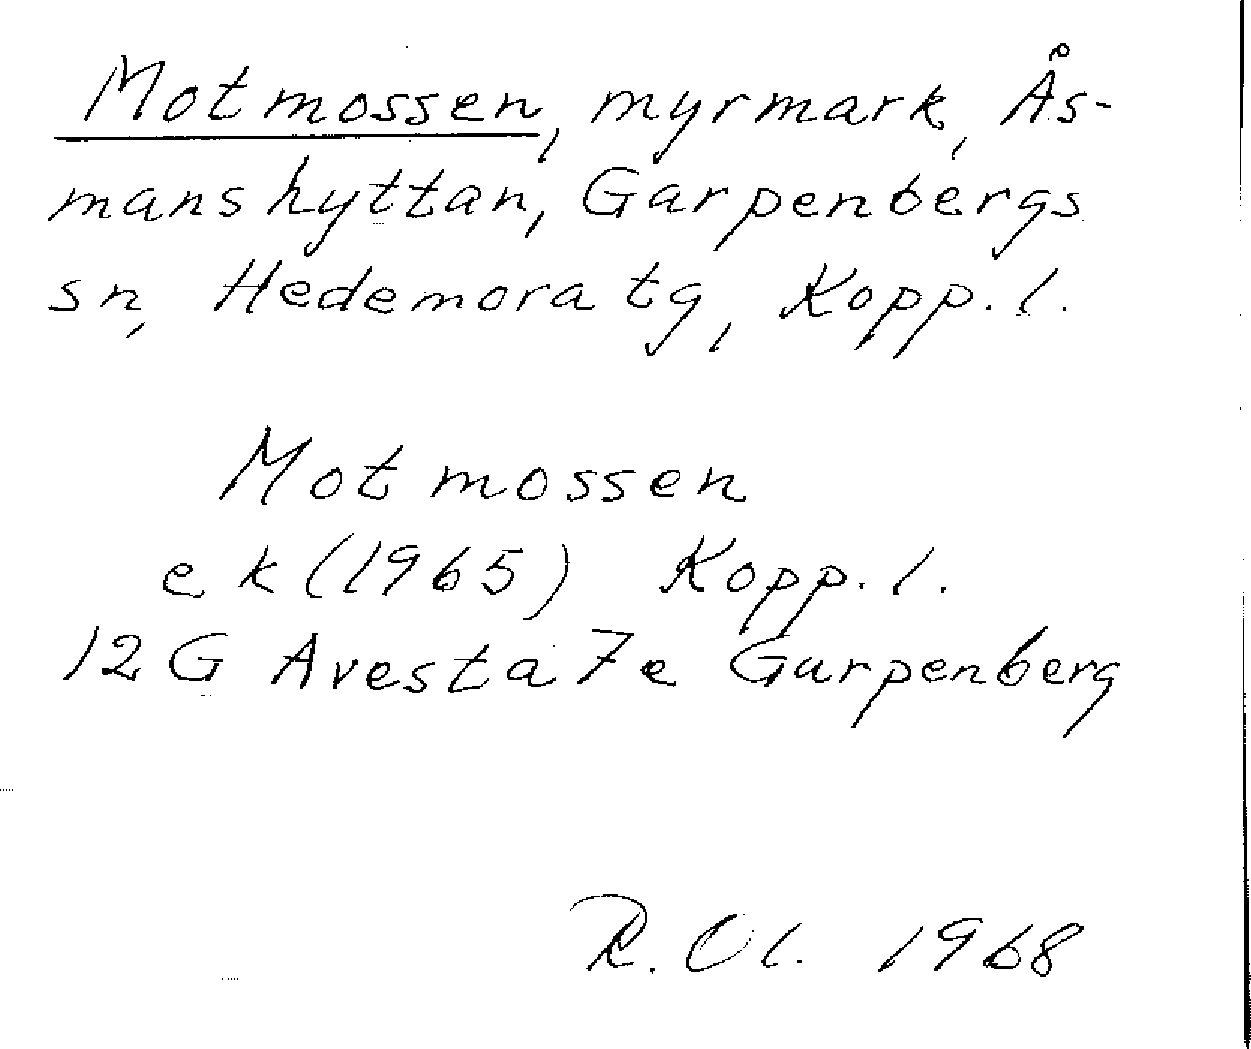 Motmossen, myrmark, Ås-
manshyttan, Garpenbergs
sn, Hedemora tg, Kopp. l.
Motmossen
ek (1965) Kopp. l.
12 G Avesta 7e Garpenberg
R. Ol. 1968